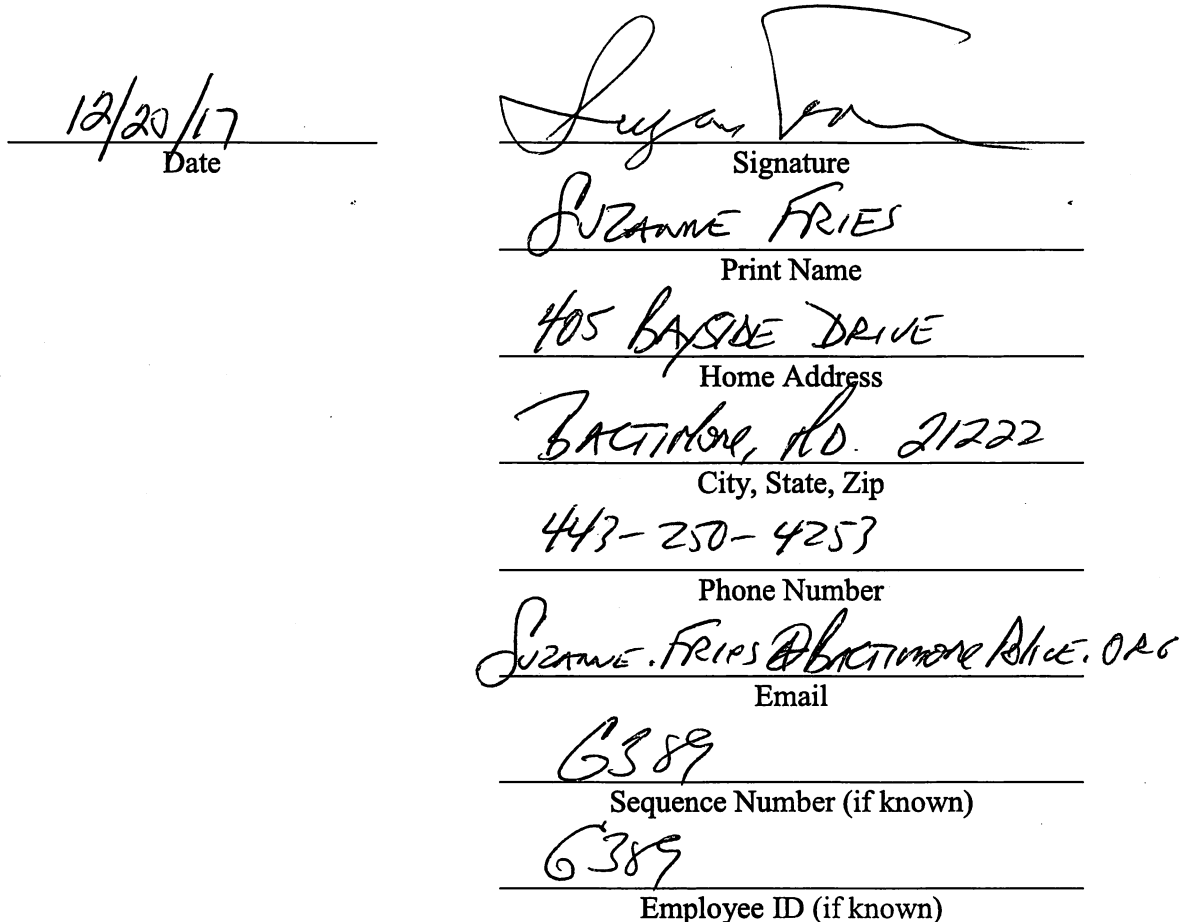 12/20/17
Date
Signature
SUZANNE FRIES
Print Name
405 BAYSIDE DRIVE
Home Address
BALTIMORE, MD. 21222
City, State, Zip
443-250-4253
Phone Number
SUZANNE.FRIES@BALTIMOREPOLICE.ORG
Email
G389
Sequence Number (if known)
G389
Employee ID (if known)